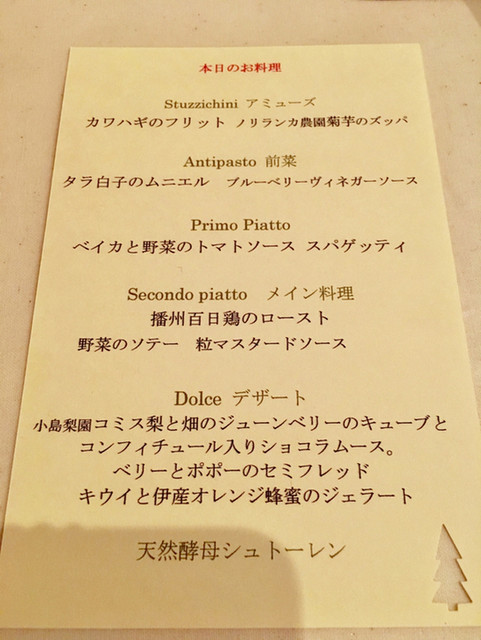 本日のお料理
Stuzzichini アミューズ
カワハギのフリット ノリランカ農園菊芋のズッパ
Antipasto 前菜
タラ白子のムニエル ブルーベリーヴィネガーソース
Primo Piatto
ベイカと野菜のトマトソース スパゲッティ
Secondo piatto メイン料理
播州百日鶏のロースト
野菜のソテー 粒マスタードソース
Dolce デザート
小島梨園コミス梨と畑のジューンベリーのキューブと
コンフィチュール入りショコラムース。
ベリーとポポーのセミフレッド
キウイと伊産オレンジ蜂蜜のジェラート
天然酵母シュトーレン